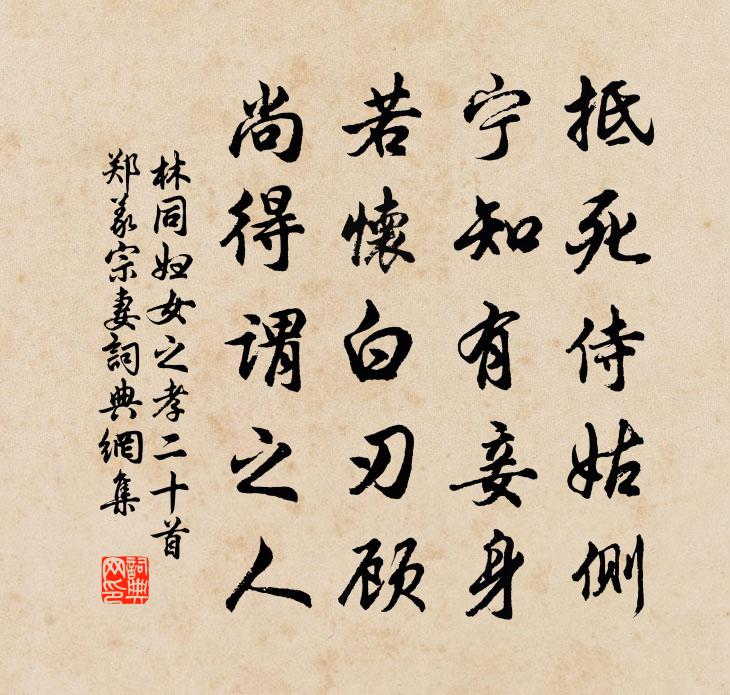 抵死侍姑側
宁知有妾身
若懷白刃顾
尚得谓之人
林同妇女之孝二十首
郑义宗妻詞典網集
詞典网印